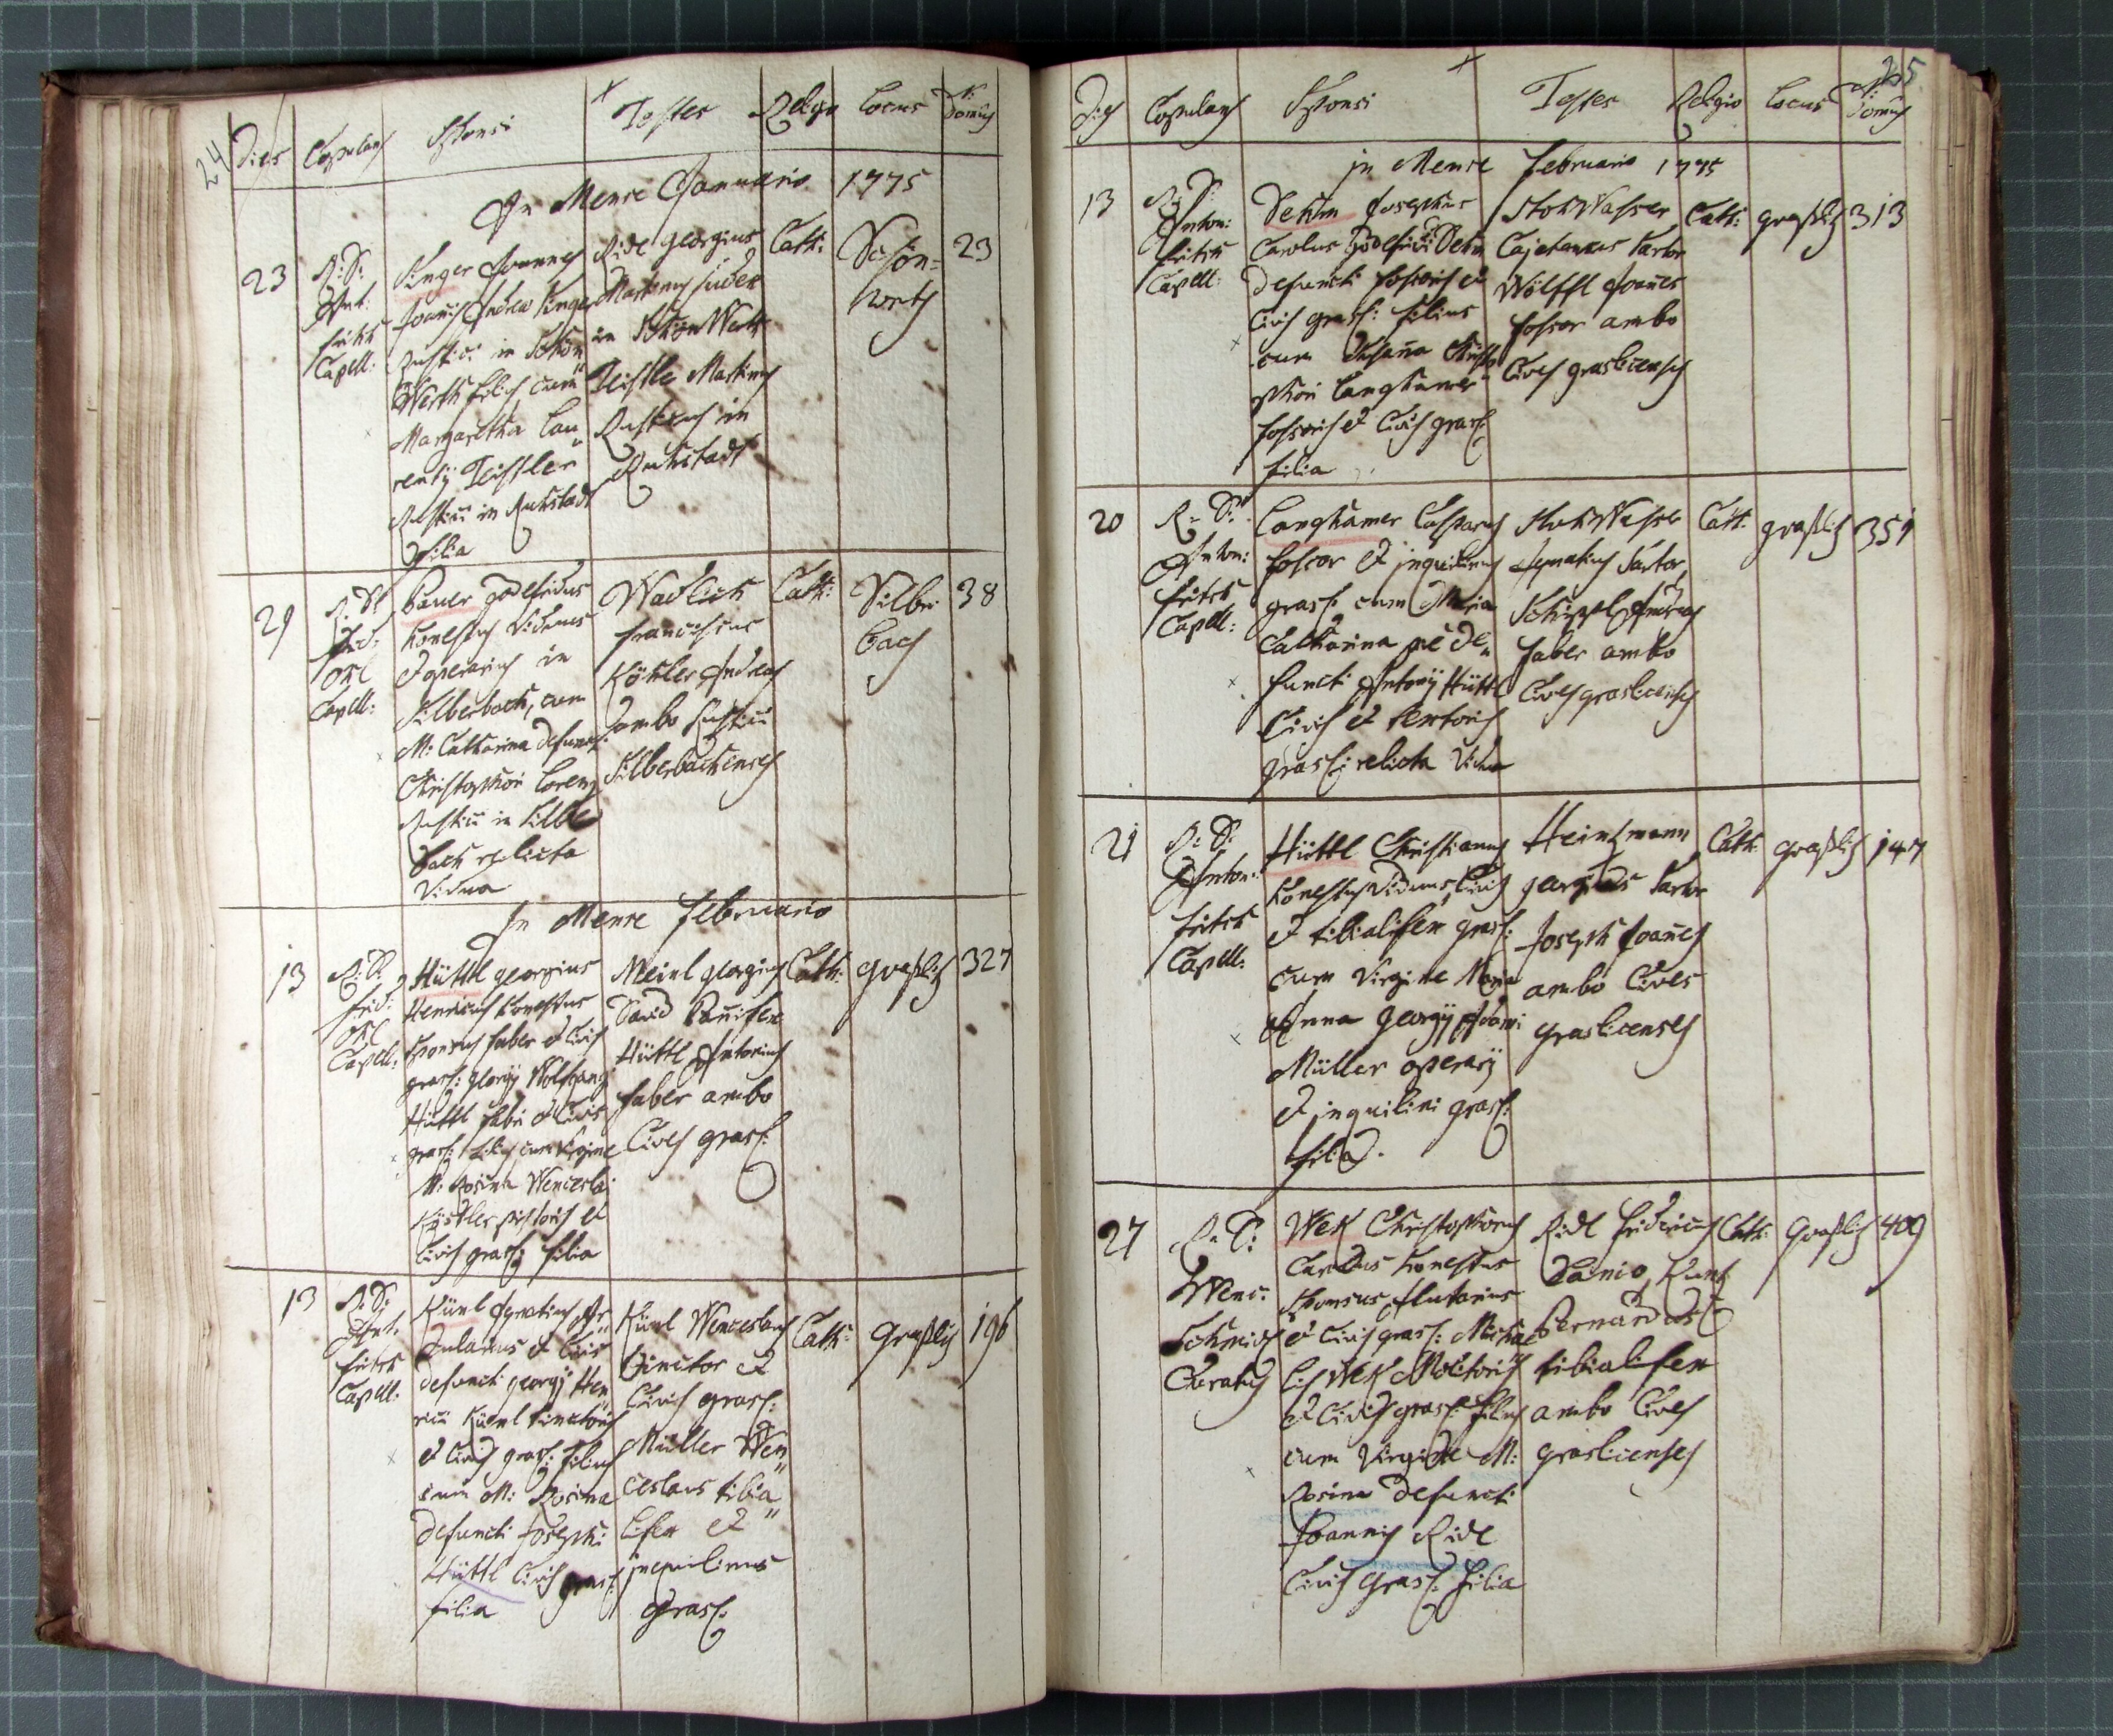 24
Dies Copulans Sponsi Testes Religio Locus N: Domus
In Mense Januario 1775
23
R: D:
Ant:
fritsch
Capell:
Singer Joannes
Joannis Andreæ Singer
Rustici in Schön
Werth filius, cum
Margaretha Lau
rentÿ Teistler
Rustici in Ruhstadt
filia
Ridl Georgius
Martinus
in SchönWerth
Teistler Martinus
Rusticus in
Ruhstadt
Cath:
Schön=
werth
23
29
R: D:
Frid:
Capell:
Bauer Godefridus
honestus Viduus
Operarius in
Silberbach, cum
M: Catharina defuncti
Christophori Lorenz
Rustici in Silber
bach relicta
Vidua
Wadlich
Franciscus
Köhler Andreas
ambo Rustici
Silberbachenses
Cath:
Silber
bach
38
In Mense Februario
13
R: D:
frid:
Capell:
Hüttl Georgius
Henricus honestus
Sponsus faber et Civis
grasl: Georgÿ Wolfgangi
Hüttl fabri et Civis
grasl: filius cum Virgine
M: Rosina Wenceslai
Köstler pistoris et
Civis grasl: filia
Meinl Georgius
David
Hüttl Antonius
faber ambo
Cives grasl:
Cath:
Graßlitz
327
13
R: D:
Ant.
fritsch
Capell.
Künl Ignatius
et Civis
defuncti Georgÿ Hen
rici Künl tinctoris
et Civis grasl: filius
cum M: Rosina
defuncti Josephi
Hüttl Civis grasl:
filia
Künl Wenceslaus
tinctor et
Civis grasl:
Müller Wen
ceslaus tibia
lifex et
inquilinus
Grasl:
Cath:
Graßlitz
196
25
Dies Copulans Sponsi Testes Religio Locus N: Domus
in Mense Februario 1775
13
R: D:
Anton:
fritsch
Capell:
Dehm Josephus
Carolus Godefridi Dehm
defuncti fossoris et
Civis grasl: filius
cum Susanna Christo
phori Langhamer
fossoris et Civis grasl:
filia
StohWasser
Cajetanus Sartor
Wölffl Joannes
fossor ambo
Cives graslicenses
Cath:
graßlitz
313
20
R: D:
Anton:
fritsch
Capell:
Langhamer Casparus
fossor et inquilinus
grasl: cum Maria
Catharina de
functi Antonÿ Hüttl
Civis et Sartoris
grasl: relicta Vidua
StohWasser
Ignatius Sartor,
Andreas
faber ambo
Cives graslicenses
Cath:
graßlitz
351
21
R: D:
Anton:
fritsch
Capell:
Hüttl Christianus
honestus Viduus, Civis
et tibialifex grasl:
cum Virgine Maria
Anna Georgÿ Adami
Müller operarÿ
et inquilini grasl:
filia.
Heintzmann
georgius Sartor
Joseph Joannes
ambo Cives
graslicenses
Cath:
graßlitz
147
27
R: D:
Wenc:
Schmidt
Curatus
WeK Christophorus
Carolus honestus
Sponsus,
et Civis grasl: Micha
elis WeK Molitoris
et Civis grasl: filius
cum Virgine M:
Rosina defuncti
Joannis Ridl
Civis grasl: filia
Ridl Fridericus
Lanio,
Bernardus
tibialifex
ambo Cives
graslicenses
Cath:
Graßlitz
409